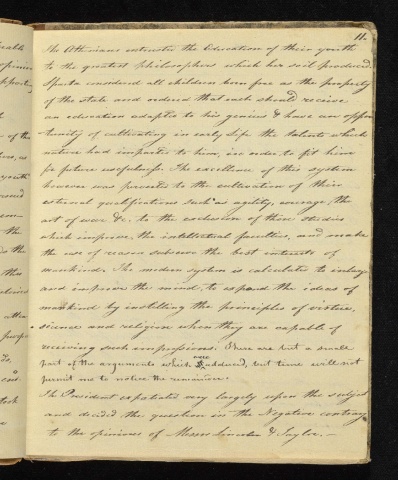 11.
The Athenians entrusted the Education of their youth
to the greatest philosophers which her soil produced
Sparta considered all children born free as the property
of the state and ordered that each should receive
an education adapted to his genius & have an oppor
tunity of cultivating in early life the talents which
nature had imparted to him, in order to fit him
for future usefulness. The excellence of this system
however was prevented to the cultivation of their
external qualifications such as agility, courage the
art of war &c. to the exclusion of those studies
which improve the intellectual faculties, and make
the use of reason subserve the best interests of
mankind. The modern system is calculated to enlarge
and improve the mind, to expand the ideas of
mankind by instilling the principles of virtue,
science and religion when they are capable of
receiving such impressions. These are but a small
part of the arguments which were adduced, but time will not
permit me to notice the remainder.
The President expatiated very largely upon the subject
and decided the question in the Negative contrary
to the opinions of Messrs & Taylor.